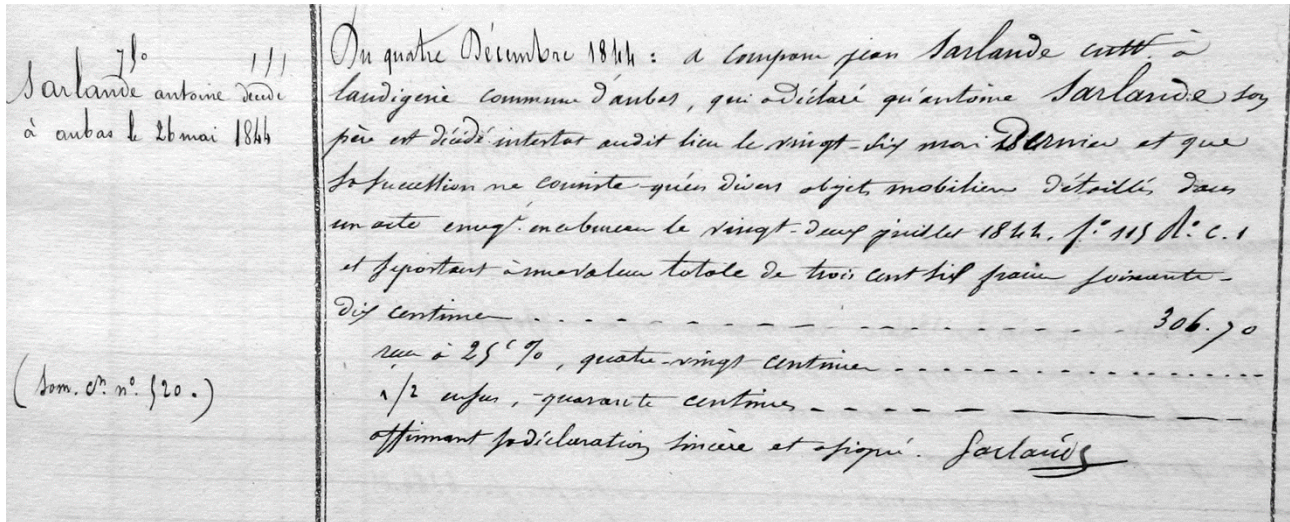 710 111
Sarlande antoine décédé
à aubas le 26 mai 1844
(Som. cn. n°. 520.)
Du quatre Décembre 1844 : a comparu jean Sarlande cultr. à
Laudigerie commune d'aubas, qui a déclaré qu'antoine Sarlande son
père est décédé intestat audit lieu le vingt-six mai Dernier et que
sa succession ne consiste qu'en divers objets mobiliers détaillés dans
un acte enregt. en ce bureau le vingt-deux juillet 1844. f° 115 R° c. 1
et se portant à une valeur totale de trois cent six francs soixante-
dix centimes 306.70
reçu à 25c %, quatre-vingt centimes
1/2 en sus, quarante centimes
affirmant sa déclaration sincère et a signé. Sarlande